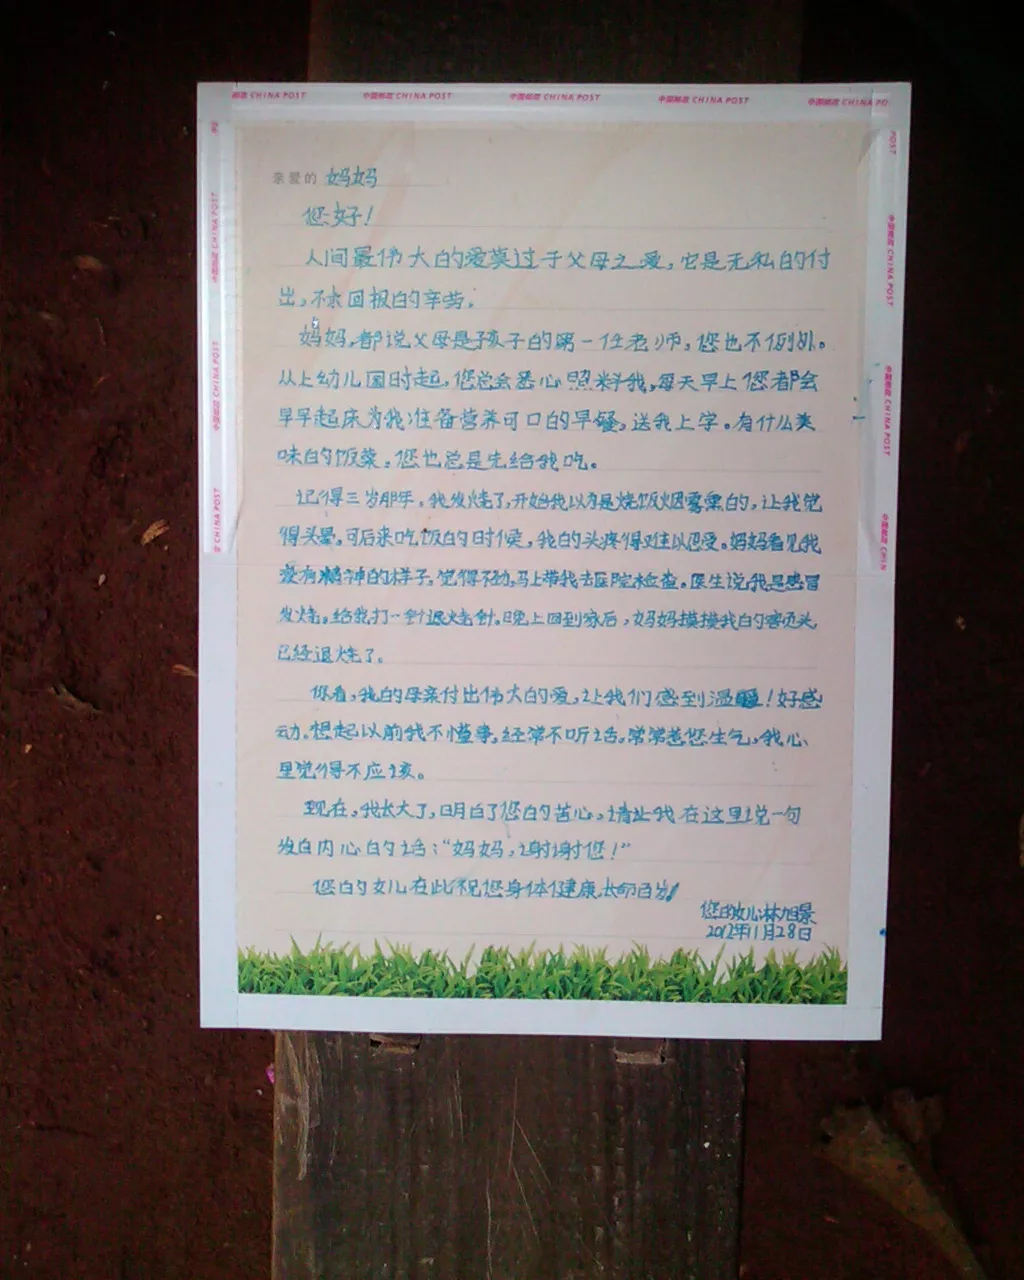 中国邮政 CHINA POST
中国邮政 CHINA POST
中国邮政 CHINA POST
中国邮政 CHINA POST
中国邮政 CHINA PO
亲爱的 妈妈
您好！
人间最伟大的爱莫过于父母之爱，它是无私的付
出，不求回报的辛劳。
妈妈，都说父母是孩子的第一任老师，您也不例外。
从上幼儿园时起，您总会悉心照料我，每天早上您都会
早早起床为我准备营养可口的早餐，送我上学。有什么美
味的饭菜，您也总是先给我吃。
记得三岁那年，我发烧了，开始我以为是烧饭烟雾熏的，让我觉
得头晕。可后来吃饭的时侯，我的头疼得难以忍受。妈妈看见我
没有精神的样子，觉得不劲，马上带我去医院检查。医生说我是感冒
发烧。给我打一针退烧针。晚上回到家后，妈妈摸摸我的额头
已经退烧了。
你看，我的母亲付出伟大的爱，让我们感到温暖！好感
动。想起以前我不懂事，经常不听话，常常惹您生气，我心
里觉得不应该。
现在，我长大了，明白了您的苦心，请让我在这里说一句
发自内心的话：“妈妈，谢谢您！”
您的女儿在此祝您身体健康，长命百岁！
您的女儿：林旭景
2012年11月28日